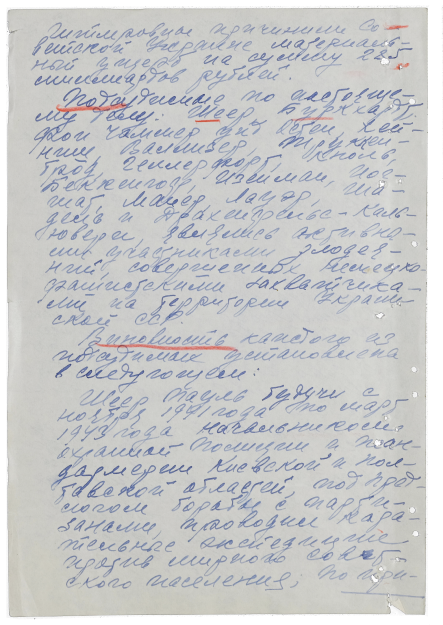 Гитлеровцы причинили Со-
ветской Украине материаль-
ный ущерб на сумму 285
миллиардов рублей.
Подсудимые по настояще-
му делу: Шеер, Буркхардт,
фон Чаммер унд Остен, Хей-
ниш, Валлизер, Труккен-
брод, Геллерфорт, Кноль,
Беккенгоф, Изенман, Йог-
шат, Майер, Лауэр, Ша-
дель и Драхенфельс-Каль-
ювери, являлись активны-
ми участниками злодея-
ний, совершенных немецко-
фашистскими захватчика-
ми на территории Украин-
ской ССР.
Виновность каждого из
подсудимых установлена
в следующем:
Шеер Пауль будучи с
ноября 1941 года по март
1943 года начальником
охранной полиции и жан-
дармерии Киевской и Пол-
тавской областей, под пред-
логом борьбы с парти-
занами, проводил кара-
тельные экспедиции
против мирного совет-
ского населения; по при-